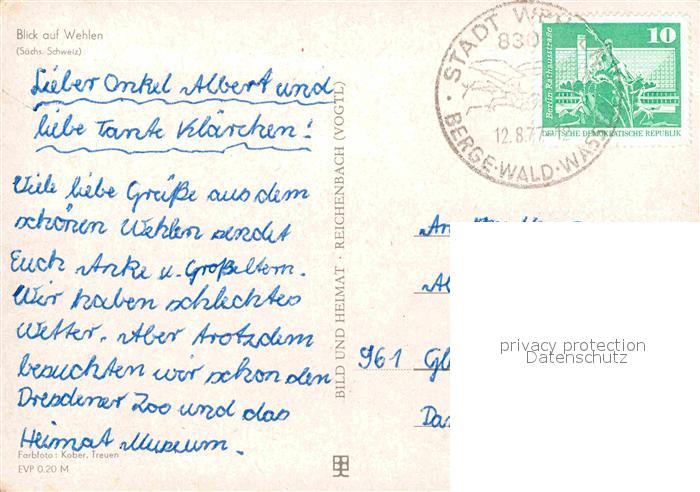 Blick auf Wehlen
(Sächs. Schweiz)
Lieber Onkel Albert und
liebe Tante Klärchen!
Viele liebe Grüße aus dem
schönen Wehlen sendet
Euch Anke u. Großeltern.
Wir haben schlechtes
Wetter. Aber trotzdem
besuchten wir schon den
Dresdener Zoo und das
Heimat Museum.
Farbfoto: Kober, Treuen
EVP 0.20 M
BILD UND HEIMAT · REICHENBACH (VOGTL)
STADT
830
12.8.77
BERGE·WALD·WAS
10
Berlin, Rathausstraße
DEUTSCHE DEMOKRATISCHE REPUBLIK
961
privacy protection
Datenschutz